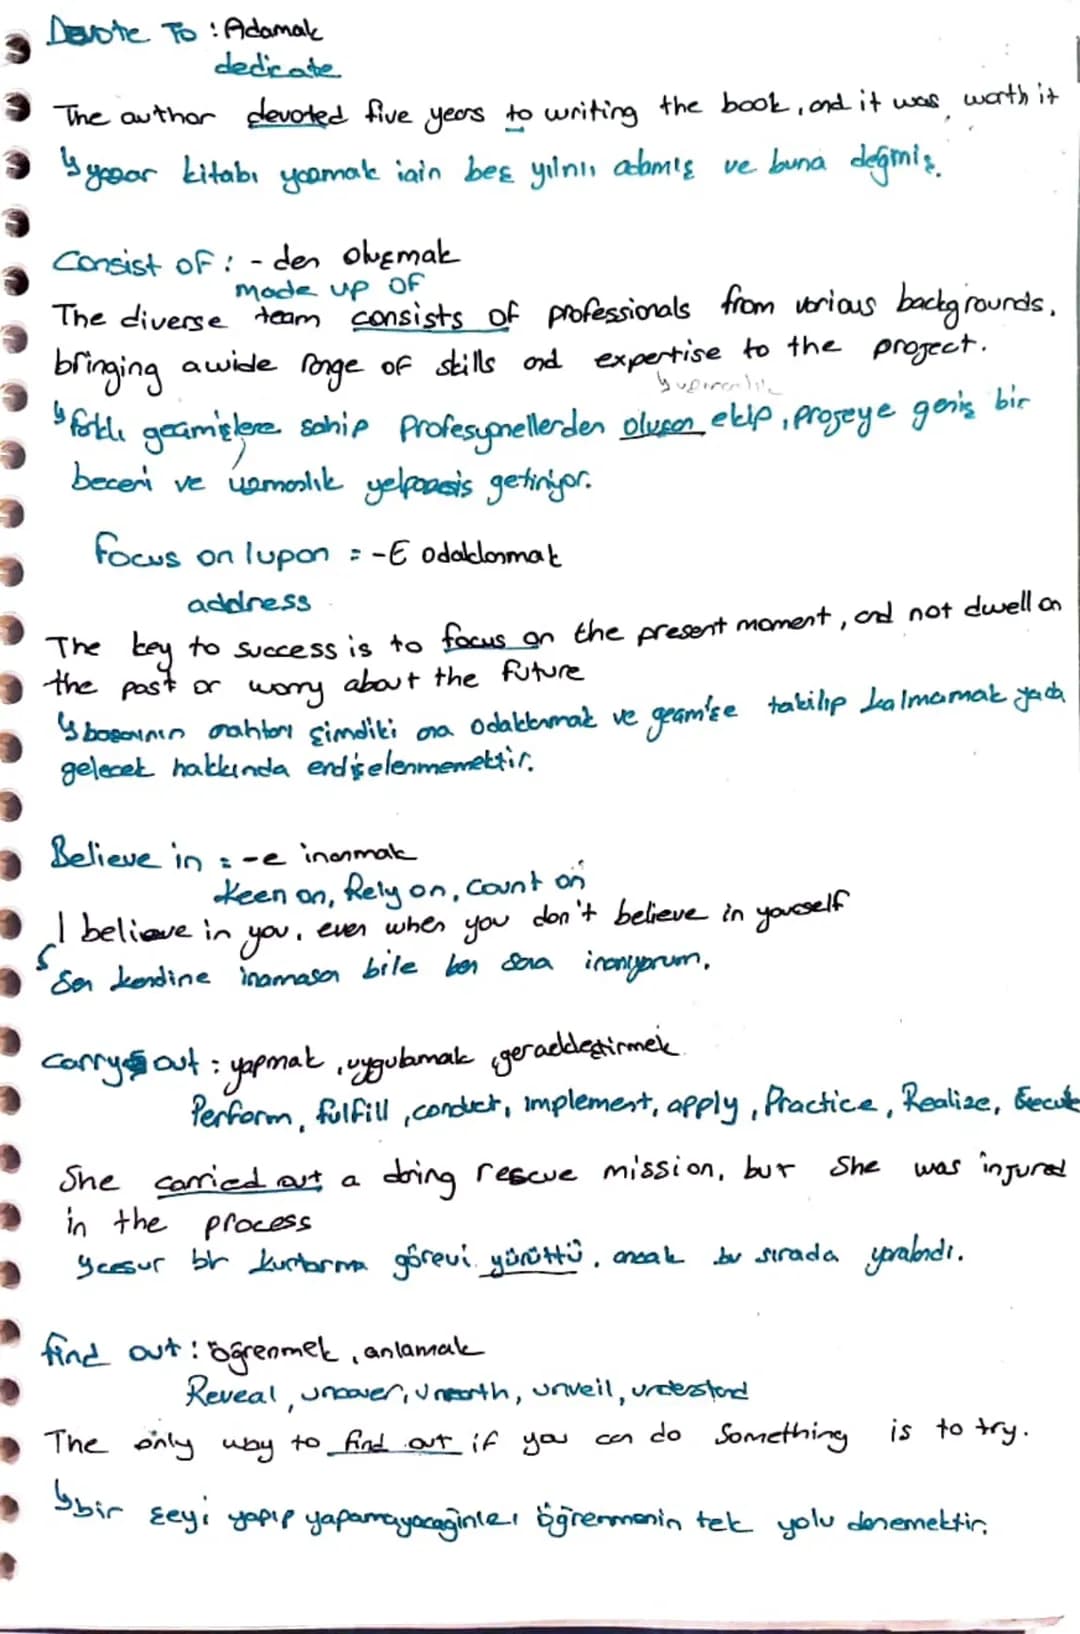 Devote To : Adamak
dedicate
The author devoted five years to writing the book, and it was worth it
↳ yazar kitabı yazmak için beş yılını adamış ve buna değmiş.
Consist of : - den oluşmak
made up of
The diverse team consists of professionals from various backgrounds,
bringing a wide range of skills and expertise to the project.
↳ uzmanlık
↳ farklı geçmişlere sahip Profesyonellerden oluşan ekip, projeye geniş bir
beceri ve uzmanlık yelpazesis getiriyor.
focus on / upon = -E odaklanmak
address
The key to success is to focus on the present moment, and not dwell on
the past or worry about the future
↳ başarının anahtarı şimdiki ana odaklanmak ve geçmişe takılıp kalmamak yada
gelecek hakkında endişelenmemektir.
Believe in : -e inanmak
Keen on, Rely on, Count on
I believe in you, even when you don't believe in yourself
Sen kendine inamasan bile ben sana inanıyorum.
Carry out : yapmak, uygulamak, gerçekleştirmek
Perform, fulfill, conduct, implement, apply, Practice, Realize, Execute
She carried out a dring rescue mission, but She was injured
in the process
↳ cesur bir kurtarma görevi yürüttü, ancak bu sırada yaralandı.
find out : öğrenmek, anlamak
Reveal, uncover, Unearth, unveil, understand
The only way to find out if you can do Something is to try.
↳ bir şeyi yapıp yapamayacağınızı öğrenmenin tek yolu denemektir.